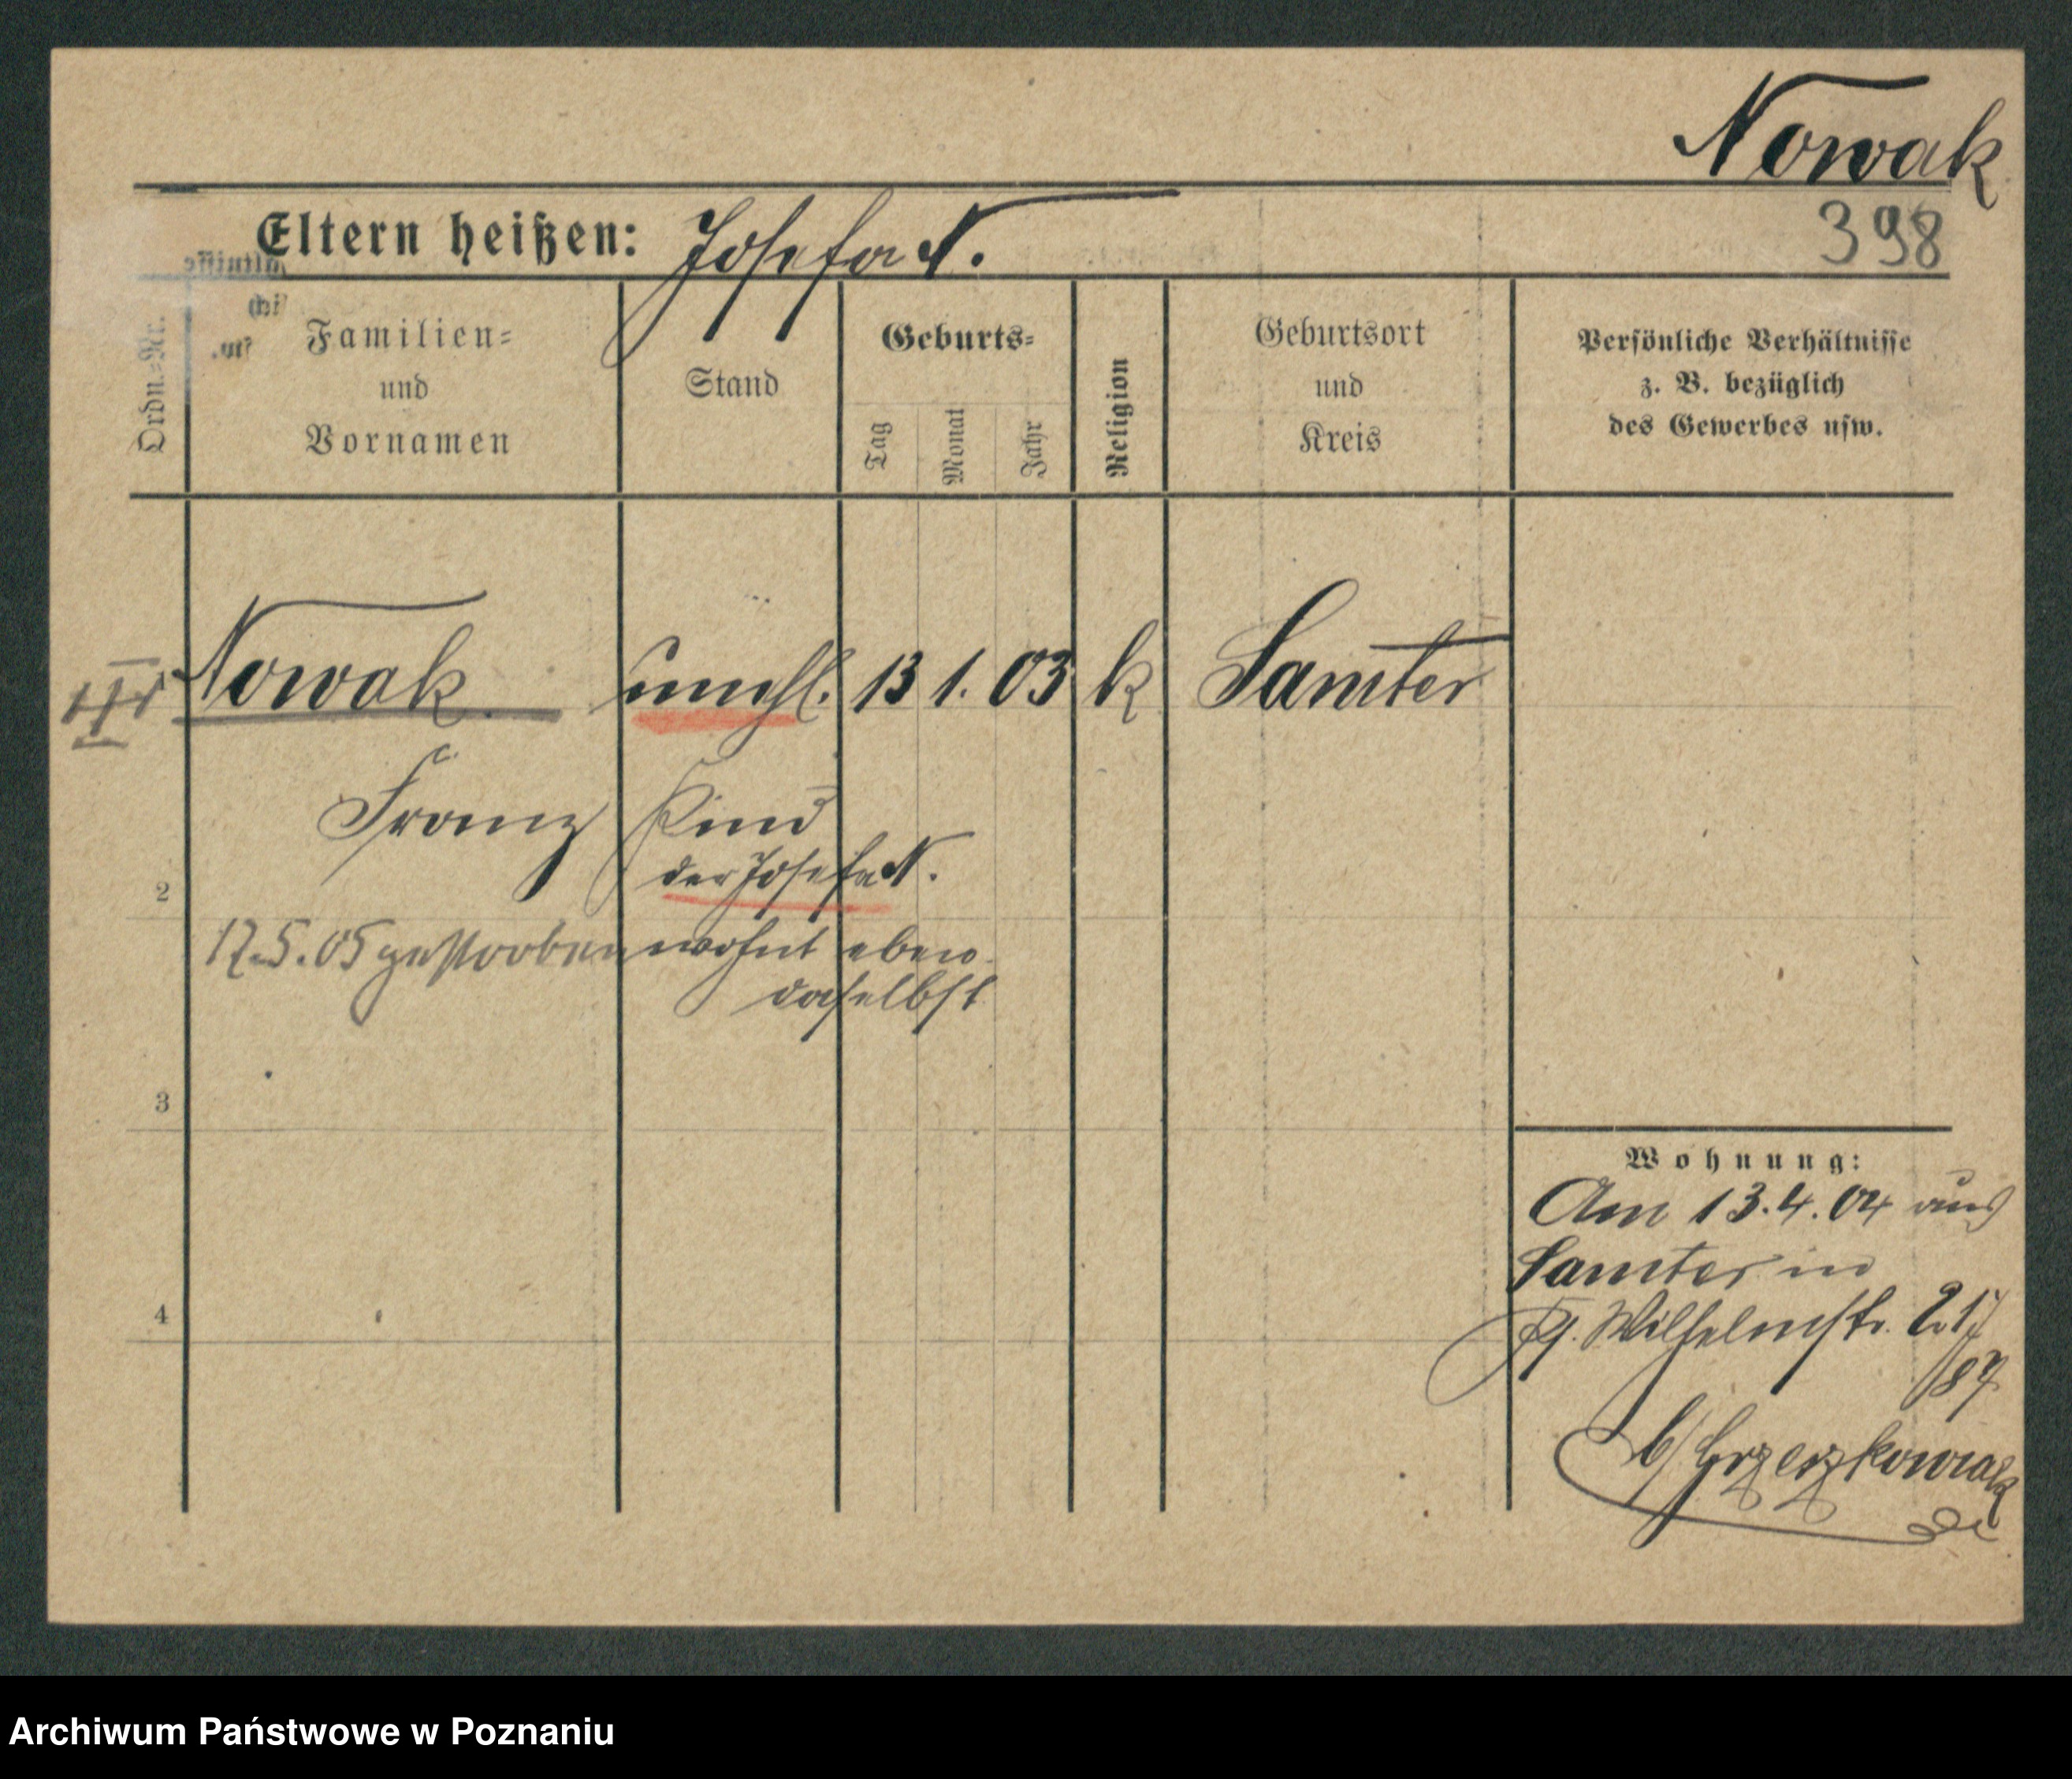 Nowak
Eltern heißen: Josefa N.
398
Ordn.-Nr.
Familien-
und
Vornamen
Stand
Geburts-
Tag
Monat
Jahr
Religion
Geburtsort
und
Kreis
Persönliche Verhältnisse
z. B. bezüglich
des Gewerbes usw.
Nowak unehl. 13 1. 03 k Samter
Franz Kind
der Josefa N.
2
17.5.05 gestorben wohnt eben
daselbst
3
4
Wohnung:
Am 13.4.04 aus
Samter in
Wilhelmstr. 217
87
b/ Grzeszkowiak
Archiwum Państwowe w Poznaniu